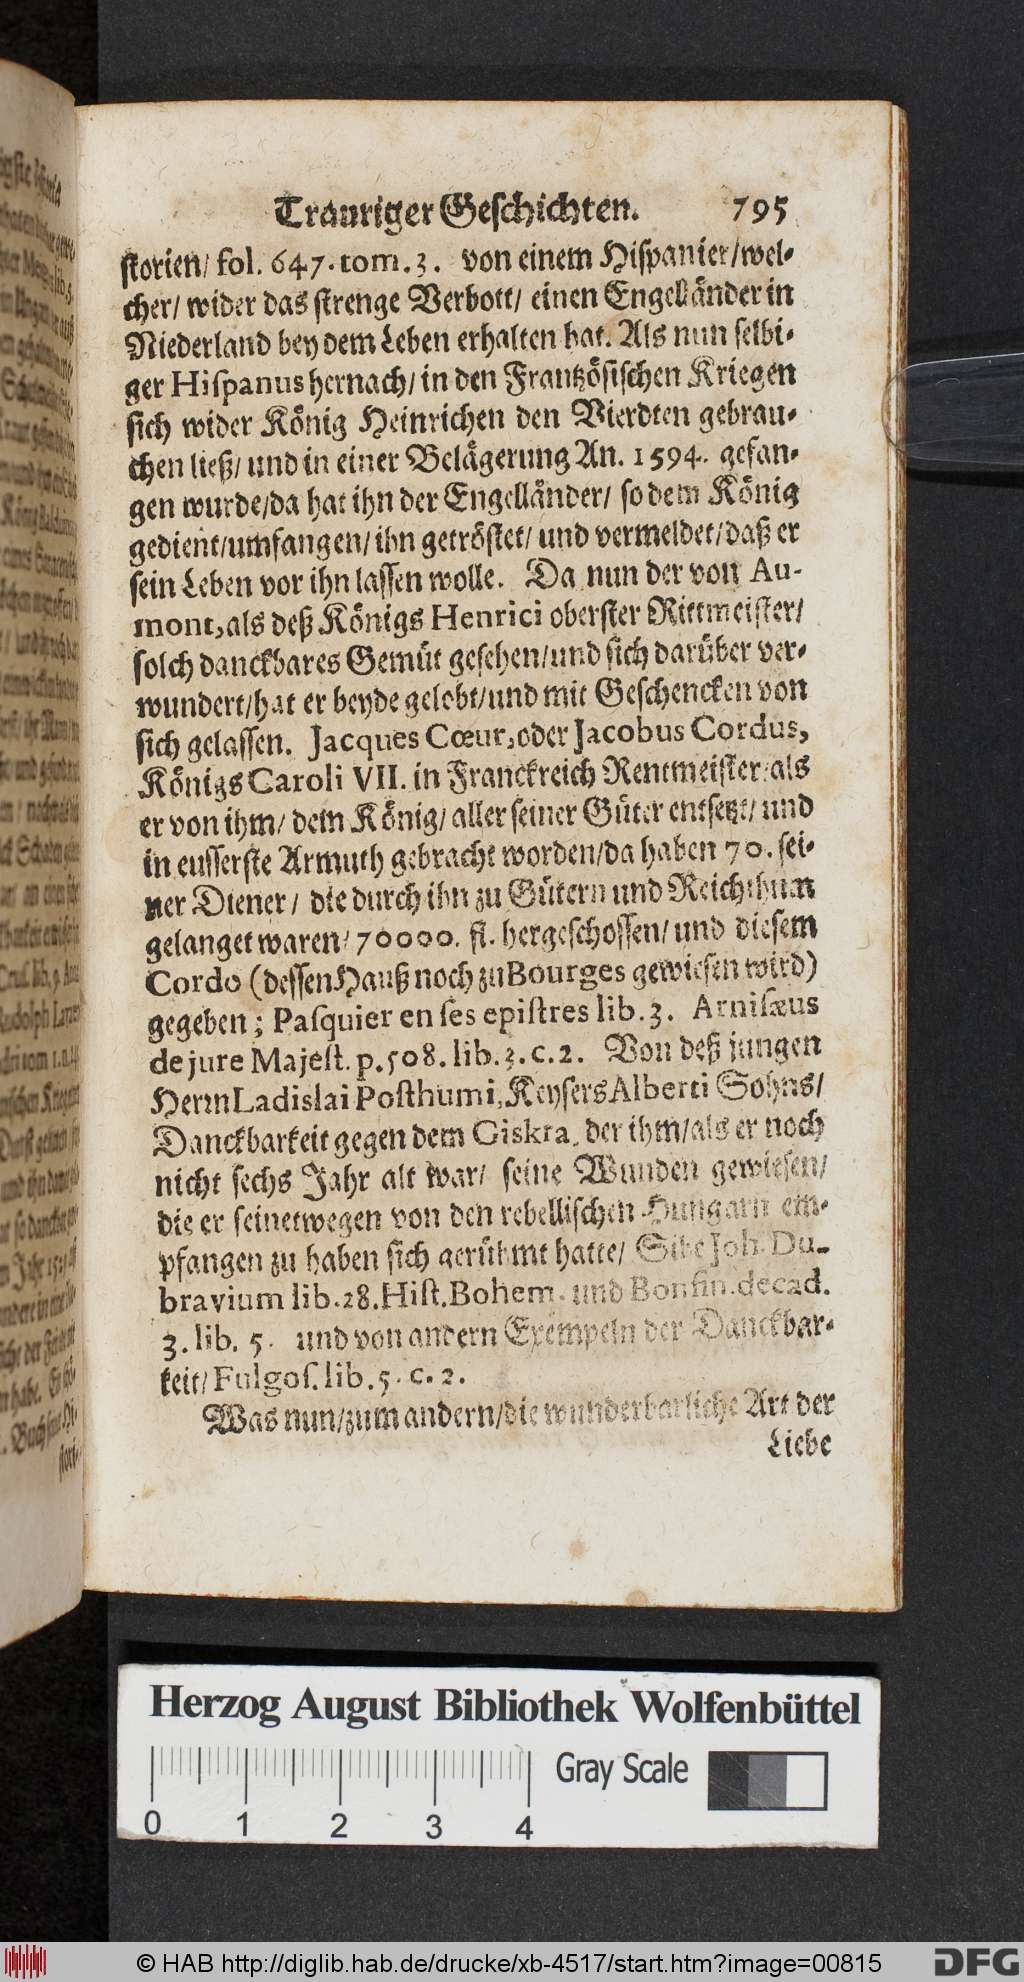 Trauriger Geſchichten. 795
ſtorien/ fol. 647. tom. 3. von einem Hiſpanier/wel-
cher/ wider das ſtrenge Verbott/ einen Engelländer in
Niederland bey dem Leben erhalten hat. Als nun ſelbi-
ger Hiſpanus hernach/ in den Frantzöſiſchen Kriegen
ſich wider König Heinrichen den Vierdten gebrau-
chen ließ/ und in einer Belägerung An. 1594. gefan-
gen wurde/da hat ihn der Engelländer/ ſo dem König
gedient/umfangen/ ihn getröſtet/ und vermeldet/daß er
ſein Leben vor ihn laſſen wolle. Da nun der von Au-
mont, als deß Königs Henrici oberſter Rittmeiſter/
ſolch danckbares Gemüt geſehen/und ſich darüber ver-
wundert/hat er beyde gelobt/und mit Geſchencken von
ſich gelaſſen. Jacques Cœur, oder Jacobus Cordus,
Königs Caroli VII. in Franckreich Rentmeiſter/als
er von ihm/ dem König/ aller ſeiner Güter entſetzt/ und
in euſſerſte Armuth gebracht worden/da haben 70. ſei-
ner Diener/ die durch ihn zu Gütern und Reichthum
gelanget waren/ 70000. fl. hergeſchoſſen/ und dieſem
Cordo (deſſen Hauß noch zu Bourges gewieſen wird)
gegeben; Paſquier en ſes epiſtres lib. 3. Arniſæus
de jure Majeſt. p. 508. lib. 3. c. 2. Von deß jungen
Herrn Ladislai Poſthumi, Keyſers Alberti Sohns/
Danckbarkeit gegen dem Giskra, der ihm/als er noch
nicht ſechs Jahr alt war/ ſeine Wunden gewieſen/
die er ſeinetwegen von den rebelliſchen Hungarn em-
pfangen zu haben ſich gerühmt hatte/ Sihe Joh. Du-
bravium lib. 28. Hiſt. Bohem. und Bonfin. decad.
3. lib. 5. und von andern Exempeln der Danckbar-
keit/ Fulgoſ. lib. 5. c. 2.
Was nun/zum andern/die wunderbarliche Art der
Liebe
Herzog August Bibliothek Wolfenbüttel
Gray Scale
0 1 2 3 4
© HAB http://diglib.hab.de/drucke/xb-4517/start.htm?image=00815
DFG